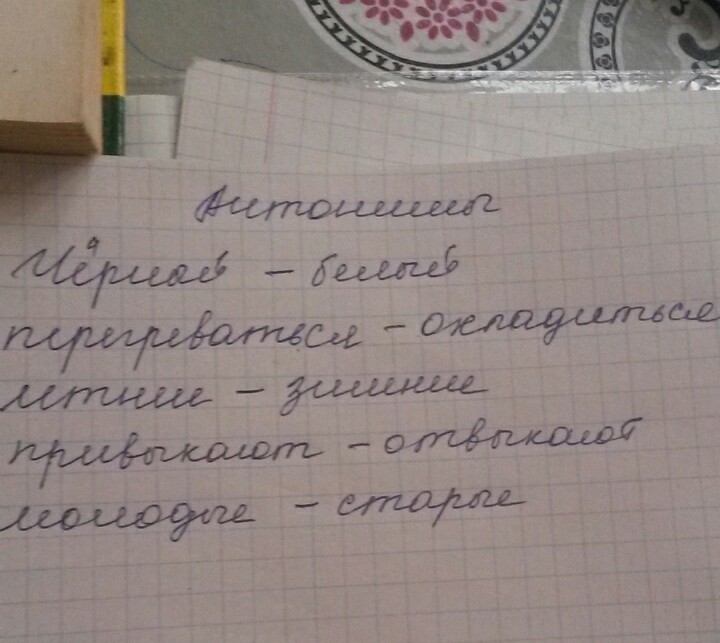 Антонимы
Чёрный – белый
перегреваться – охладиться
летние – зимние
привыкают – отвыкают
молодые – старые